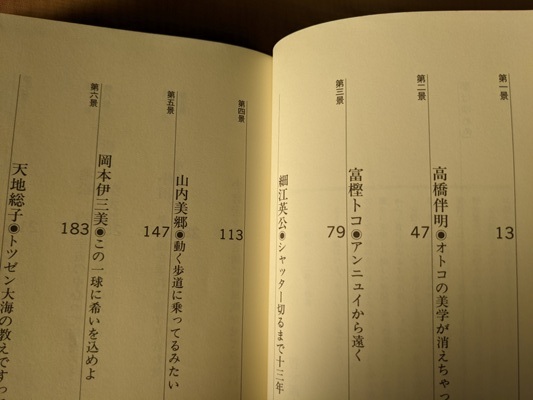 第一景
13
高橋伴明◉オトコの美学が消えちゃっ
第二景
47
富樫トコ◉アンニュイから遠く
第三景
79
細江英公◉シャッター切るまで十三年
第四景
113
山内美郷◉動く歩道に乗ってるみたい
第五景
147
岡本伊三美◉この一球に希いを込めよ
第六景
183
天地総子◉トツゼン大海の教えですっ